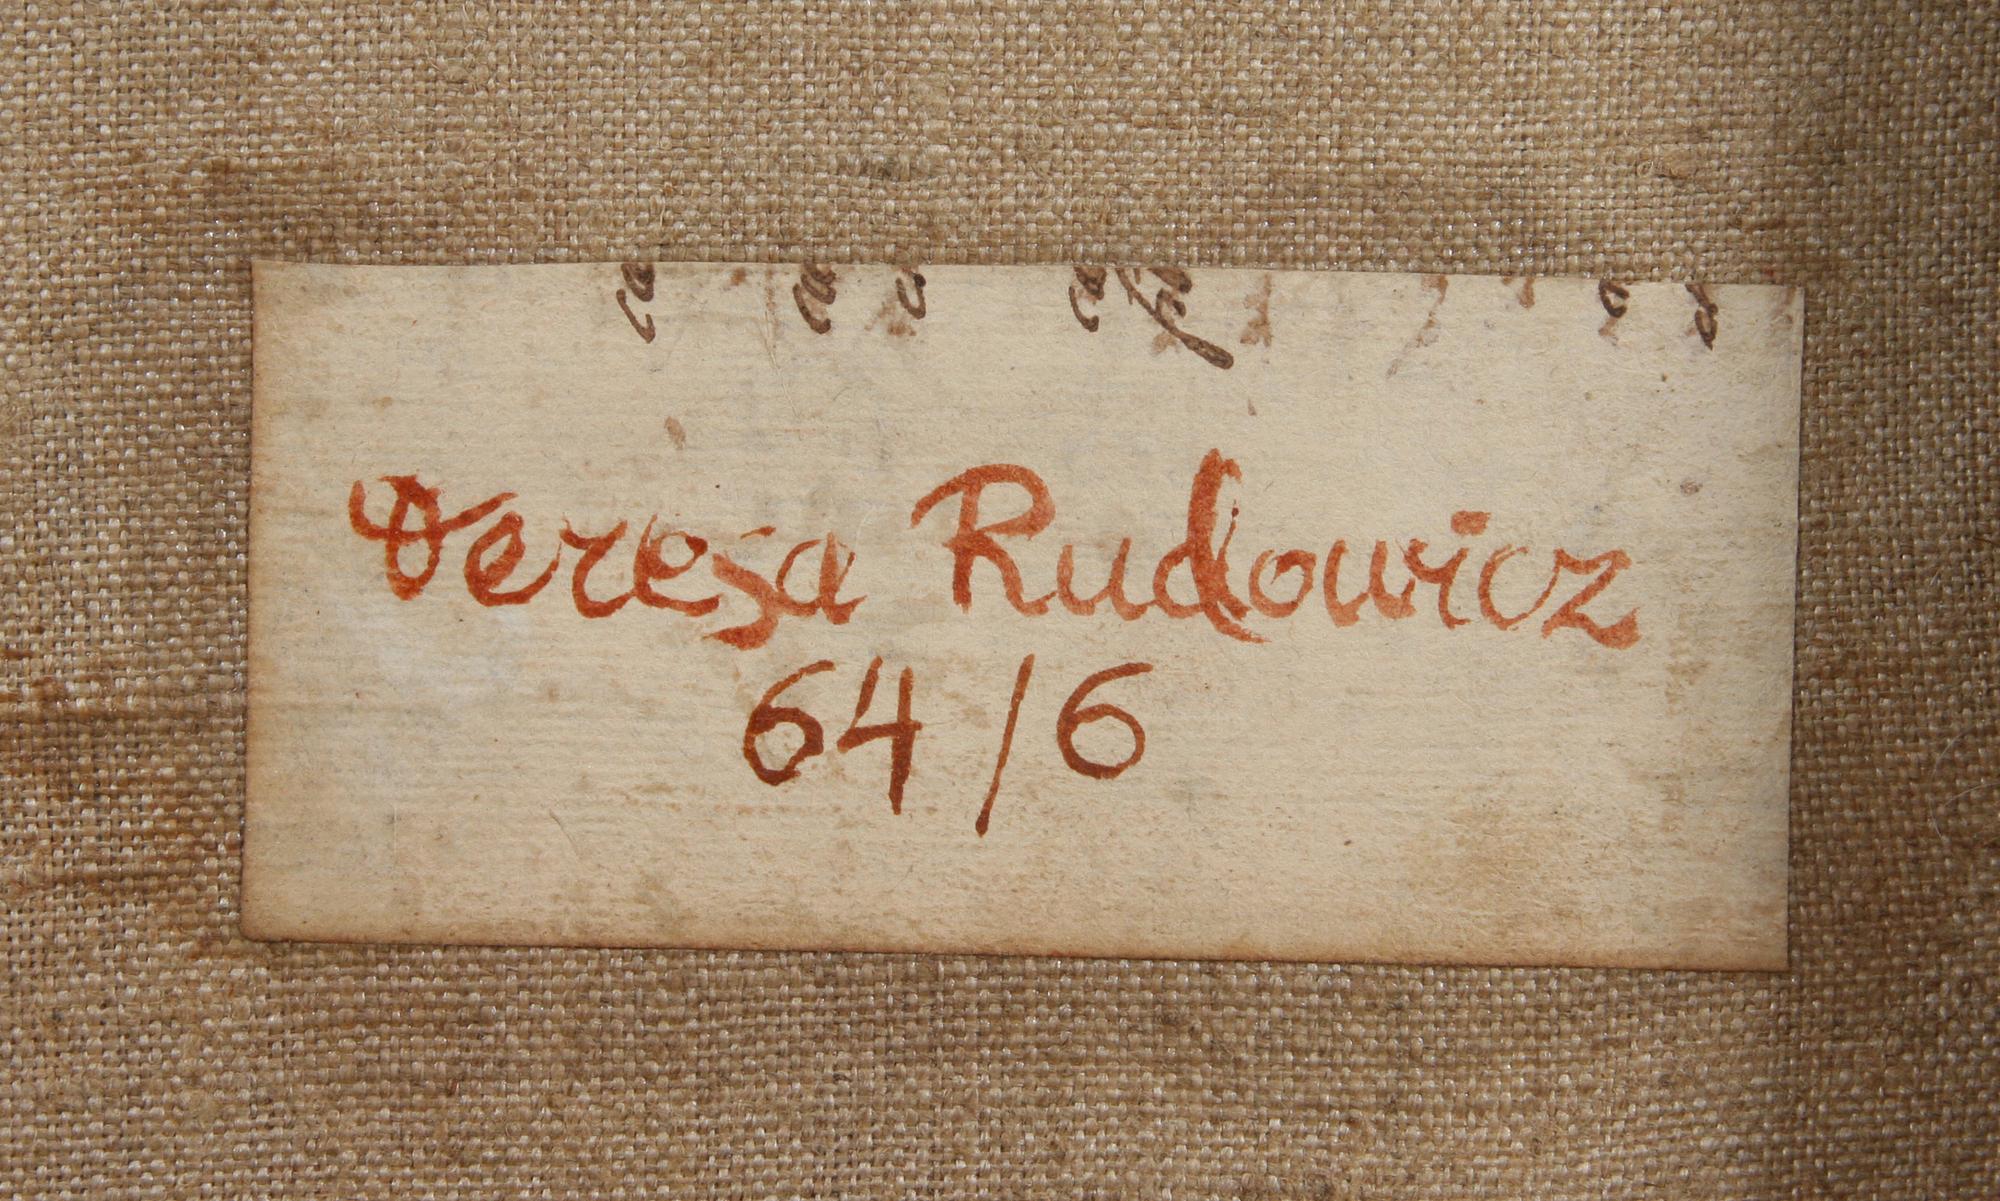 Teresa Rudowicz
64/6